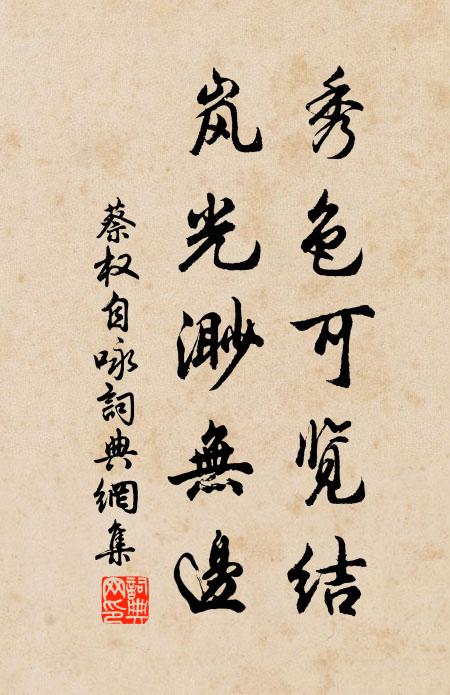 秀色可览结
岚光渺無邊
蔡权自咏詞典網集
詞典
网印